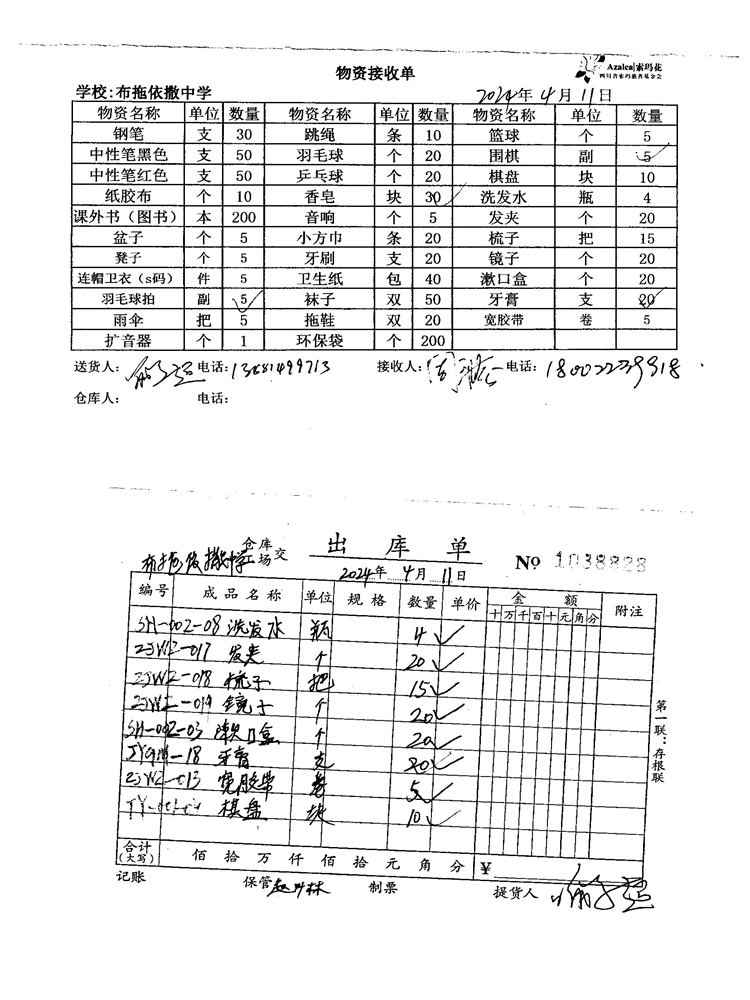 Azalea|索玛花
四川省索玛慈善基金会
物资接收单
学校:布拖依撒中学 2024年4月11日
物资名称 单位 数量 物资名称 单位 数量 物资名称 单位 数量
钢笔 支 30 跳绳 条 10 篮球 个 5
中性笔黑色 支 50 羽毛球 个 20 围棋 副 5
中性笔红色 支 50 乒乓球 个 20 棋盘 块 10
纸胶布 个 10 香皂 块 30 洗发水 瓶 4
课外书（图书） 本 200 音响 个 5 发夹 个 20
盆子 个 5 小方巾 条 20 梳子 把 15
凳子 个 5 牙刷 支 20 镜子 个 20
连帽卫衣（s码） 件 5 卫生纸 包 40 漱口盒 个 20
羽毛球拍 副 5 袜子 双 50 牙膏 支 20
雨伞 把 5 拖鞋 双 20 宽胶带 卷 5
扩音器 个 1 环保袋 个 200
送货人： 电话: 接收人： 电话:
仓库人： 电话:
仓库
布拖依撒中学 场 交 出库单 No 1038828
2024年4月11日
编号 成品名称 单位 规格 数量 单价 金额 附注
十万千百十元角分
SH-002-08 洗发水 瓶 4
ZJWZ-017 发夹 个 20
ZJWZ-018 梳子 把 15
ZJWZ-019 镜子 个 20
SH-002-03 漱口盒 个 20
18 牙膏 支 20
ZJWZ-013 宽胶带 卷 5
棋盘 块 10
第一联：存根联
合计（大写） 佰拾万仟佰拾元角分 ¥
记账 保管 制票 提货人